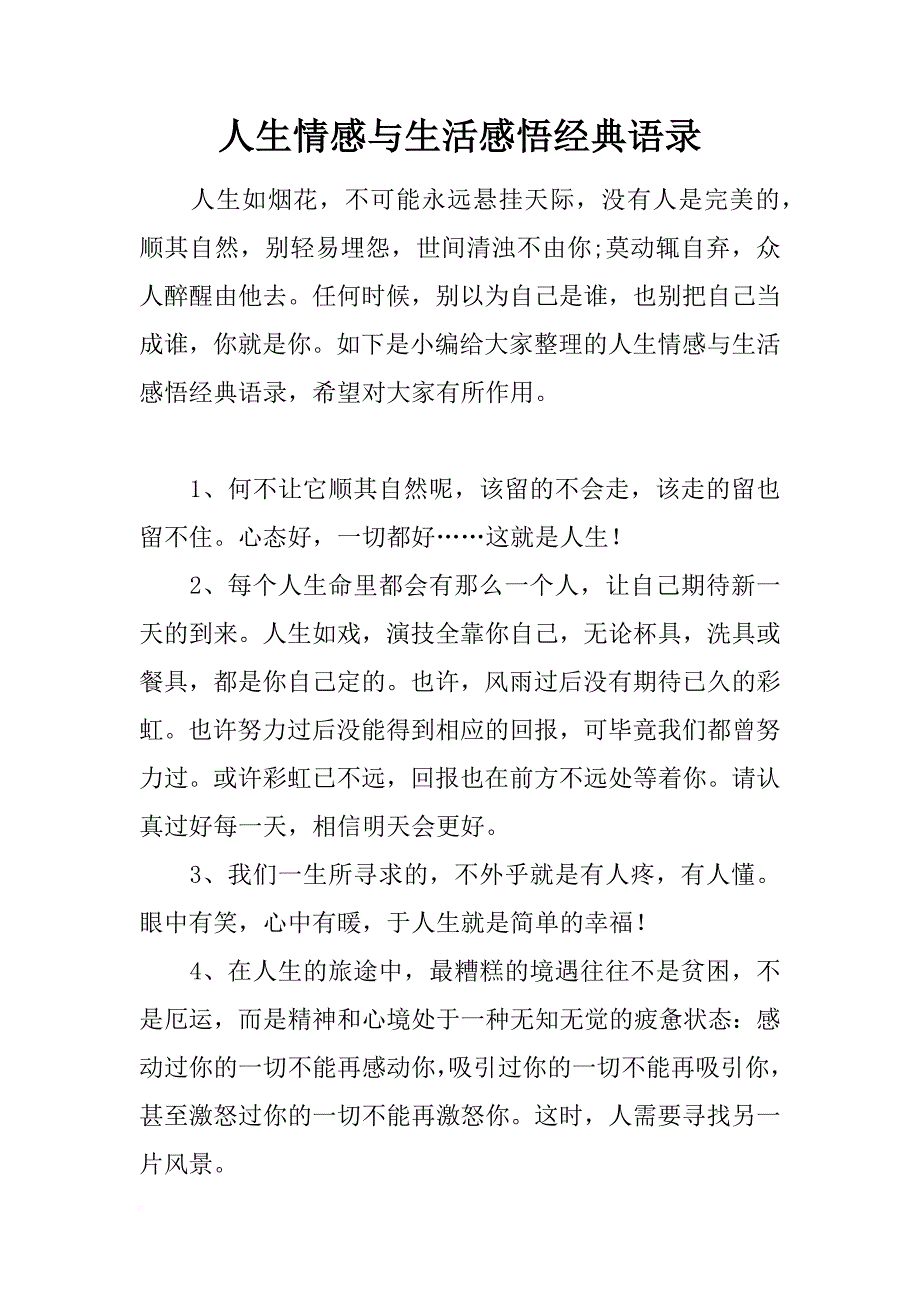 人生情感与生活感悟经典语录
人生如烟花，不可能永远悬挂天际，没有人是完美的，
顺其自然，别轻易埋怨，世间清浊不由你;莫动辄自弃，众
人醉醒由他去。任何时候，别以为自己是谁，也别把自己当
成谁，你就是你。如下是小编给大家整理的人生情感与生活
感悟经典语录，希望对大家有所作用。
1、何不让它顺其自然呢，该留的不会走，该走的留也
留不住。心态好，一切都好……这就是人生！
2、每个人生命里都会有那么一个人，让自己期待新一
天的到来。人生如戏，演技全靠你自己，无论杯具，洗具或
餐具，都是你自己定的。也许，风雨过后没有期待已久的彩
虹。也许努力过后没能得到相应的回报，可毕竟我们都曾努
力过。或许彩虹已不远，回报也在前方不远处等着你。请认
真过好每一天，相信明天会更好。
3、我们一生所寻求的，不外乎就是有人疼，有人懂。
眼中有笑，心中有暖，于人生就是简单的幸福！
4、在人生的旅途中，最糟糕的境遇往往不是贫困，不
是厄运，而是精神和心境处于一种无知无觉的疲惫状态：感
动过你的一切不能再感动你，吸引过你的一切不能再吸引你，
甚至激怒过你的一切不能再激怒你。这时，人需要寻找另一
片风景。